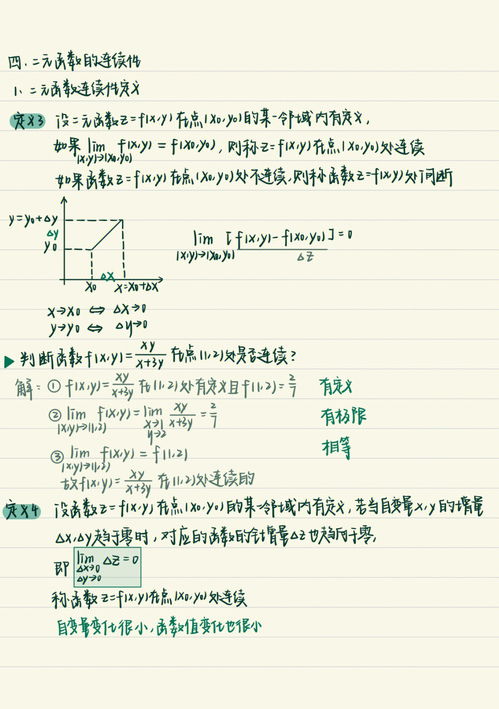 四.二元函数的连续性
1、二元函数连续性定义
定义3 设二元函数z=f(x,y)在点(x0,y0)的某一邻域内有定义,
如果 lim f(x,y) = f(x0,y0), 则称z=f(x,y)在点(x0,y0)处连续
(x,y)→(x0,y0)
如果函数z=f(x,y)在点(x0,y0)处不连续,则称函数z=f(x,y)处间断
y=y0+Δy
Δy
y0
x0 Δx x=x0+Δx
lim [f(x,y)-f(x0,y0)]=0
(x,y)→(x0,y0) Δz
x→x0 ⇔ Δx→0
y→y0 ⇔ Δy→0
▶判断函数f(x,y)=xy/(x+3y)在点(1,2)处是否连续?
解: ① f(x,y)=xy/(x+3y)在(1,2)处有定义且f(1,2)=2/7 有定义
② lim f(x,y)=lim xy/(x+3y)=2/7 有极限
(x,y)→(1,2) x→1 y→2
③ lim f(x,y)=f(1,2) 相等
(x,y)→(1,2)
故f(x,y)=xy/(x+3y)在(1,2)处连续的
定义4 设函数z=f(x,y)在点(x0,y0)的某一邻域内有定义,若当自变量x,y的增量
Δx,Δy趋于零时,对应的函数的全增量Δz也趋向于零,
即 lim Δz=0
Δx→0
Δy→0
称函数z=f(x,y)在点(x0,y0)处连续
自变量变化很小,函数值变化也很小